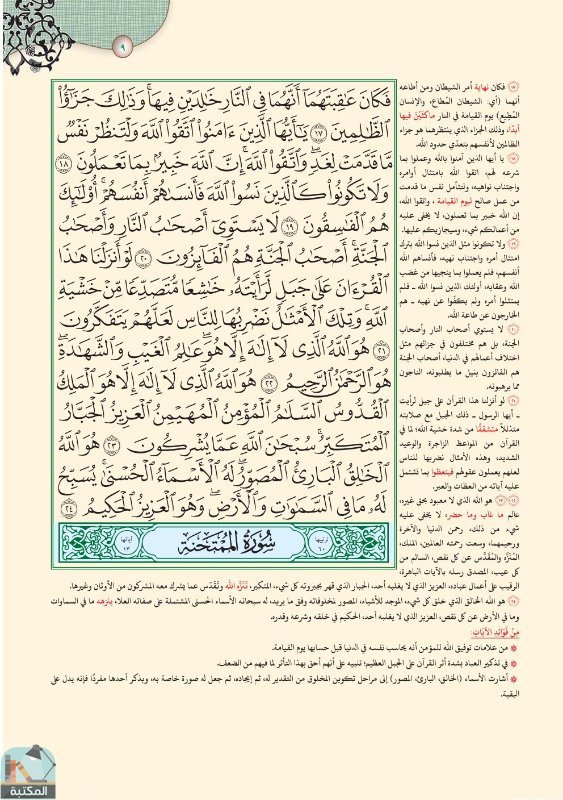 ٩
فَكَانَ عَٰقِبَتَهُمَآ أَنَّهُمَا فِى ٱلنَّارِ خَٰلِدَيْنِ فِيهَا ۚ وَذَٰلِكَ جَزَٰٓؤُا۟
ٱلظَّٰلِمِينَ ١٧ يَٰٓأَيُّهَا ٱلَّذِينَ ءَامَنُوا۟ ٱتَّقُوا۟ ٱللَّهَ وَلْتَنظُرْ نَفْسٌ
مَّا قَدَّمَتْ لِغَدٍ ۖ وَٱتَّقُوا۟ ٱللَّهَ ۚ إِنَّ ٱللَّهَ خَبِيرٌۢ بِمَا تَعْمَلُونَ ١٨
وَلَا تَكُونُوا۟ كَٱلَّذِينَ نَسُوا۟ ٱللَّهَ فَأَنسَىٰهُمْ أَنفُسَهُمْ ۚ أُو۟لَٰٓئِكَ
هُمُ ٱلْفَٰسِقُونَ ١٩ لَا يَسْتَوِىٓ أَصْحَٰبُ ٱلنَّارِ وَأَصْحَٰبُ
ٱلْجَنَّةِ ۚ أَصْحَٰبُ ٱلْجَنَّةِ هُمُ ٱلْفَآئِزُونَ ٢٠ لَوْ أَنزَلْنَا هَٰذَا
ٱلْقُرْءَانَ عَلَىٰ جَبَلٍ لَّرَأَيْتَهُۥ خَٰشِعًا مُّتَصَدِّعًا مِّنْ خَشْيَةِ
ٱللَّهِ ۚ وَتِلْكَ ٱلْأَمْثَٰلُ نَضْرِبُهَا لِلنَّاسِ لَعَلَّهُمْ يَتَفَكَّرُونَ
٢١ هُوَ ٱللَّهُ ٱلَّذِى لَآ إِلَٰهَ إِلَّا هُوَ ۖ عَٰلِمُ ٱلْغَيْبِ وَٱلشَّهَٰدَةِ ۖ
هُوَ ٱلرَّحْمَٰنُ ٱلرَّحِيمُ ٢٢ هُوَ ٱللَّهُ ٱلَّذِى لَآ إِلَٰهَ إِلَّا هُوَ ٱلْمَلِكُ
ٱلْقُدُّوسُ ٱلسَّلَٰمُ ٱلْمُؤْمِنُ ٱلْمُهَيْمِنُ ٱلْعَزِيزُ ٱلْجَبَّارُ
ٱلْمُتَكَبِّرُ ۚ سُبْحَٰنَ ٱللَّهِ عَمَّا يُشْرِكُونَ ٢٣ هُوَ ٱللَّهُ
ٱلْخَٰلِقُ ٱلْبَارِئُ ٱلْمُصَوِّرُ ۖ لَهُ ٱلْأَسْمَآءُ ٱلْحُسْنَىٰ ۚ يُسَبِّحُ
لَهُۥ مَا فِى ٱلسَّمَٰوَٰتِ وَٱلْأَرْضِ ۖ وَهُوَ ٱلْعَزِيزُ ٱلْحَكِيمُ ٢٤
ترتيبها ٦٠ سُورَةُ المُمْتَحنَة آياتها ١٣
١٧ فكان نهاية أمر الشيطان ومن أطاعه
أنهما (أي: الشيطان المُطاع، والإنسان
المُطِيع) يوم القيامة في النار ماكثَيْن فيها
أبدًا، وذلك الجزاء الذي ينتظرهما هو جزاء
الظالمين لأنفسهم بتعدّي حدود الله.
١٨ يا أيها الذين آمنوا بالله وعملوا بما
شرعه لهم، اتقوا الله بامتثال أوامره
واجتناب نواهيه، ولتتأمل نفس ما قدمت
من عمل صالح ليوم القيامة، واتقوا الله،
إن الله خبير بما تعملون، لا يخفى عليه
من أعمالكم شيء، وسيجازيكم عليها.
١٩ ولا تكونوا مثل الذين نسوا الله بترك
امتثال أمره واجتناب نهيه، فأنساهم الله
أنفسهم، فلم يعملوا بما ينجيها من غضب
الله وعقابه، أولئك الذين نسوا الله ـ فلم
يمتثلوا أمره ولم يكفّوا عن نهيه ـ هم
الخارجون عن طاعة الله.
٢٠ لا يستوي أصحاب النار وأصحاب
الجنة، بل هم مختلفون في جزائهم مثل
اختلاف أعمالهم في الدنيا، أصحاب الجنة
هم الفائزون بنيل ما يطلبونه، الناجون
مما يرهبونه.
٢١ لو أنزلنا هذا القرآن على جبل لرأيت
ـ أيها الرسول ـ ذلك الجبل مع صلابته
متذللاً متشققًا من شدة خشية الله؛ لما في
القرآن من المواعظ الزاجرة والوعيد
الشديد، وهذه الأمثال نضربها للناس
لعلهم يعملون عقولهم فيتعظوا بما تشتمل
عليه آياته من العظات والعبر.
٢٢ ٢٣ هو الله الذي لا معبود بحق غيره،
عالم ما غاب وما حضر، لا يخفى عليه
شيء من ذلك، رحمن الدنيا والآخرة
ورحيمهما، وسعت رحمته العالمين، الملك،
المُنَزَّه والمُقَدَّس عن كل نقص، السالم من
كل عيب، المصدق رسله بالآيات الباهرة،
الرقيب على أعمال عباده، العزيز الذي لا يغلبه أحد، الجبار الذي قهر بجبروته كل شيء، المتكبر، تَنَزَّه الله وتَقَدَّس عما يشرك معه المشركون من الأوثان وغيرها.
٢٤ هو الله الخالق الذي خلق كل شيء، الموجد للأشياء، المصور لمخلوقاته وفق ما يريد، له سبحانه الأسماء الحسنى المشتملة على صفاته العلا، ينزهه ما في السماوات
وما في الأرض عن كل نقص، العزيز الذي لا يغلبه أحد، الحكيم في خلقه وشرعه وقدره.
مِنْ فَوَائِدِ الْآيَاتِ:
* من علامات توفيق الله للمؤمن أنه يحاسب نفسه في الدنيا قبل حسابها يوم القيامة.
* في تذكير العباد بشدة أثر القرآن على الجبل العظيم؛ تنبيه على أنهم أحق بهذا التأثر لما فيهم من الضعف.
* أشارت الأسماء (الخالق، البارئ، المصور) إلى مراحل تكوين المخلوق من التقدير له، ثم إيجاده، ثم جعل له صورة خاصة به، وبذكر أحدها مفردًا فإنه يدل على
البقية.
المكتبة